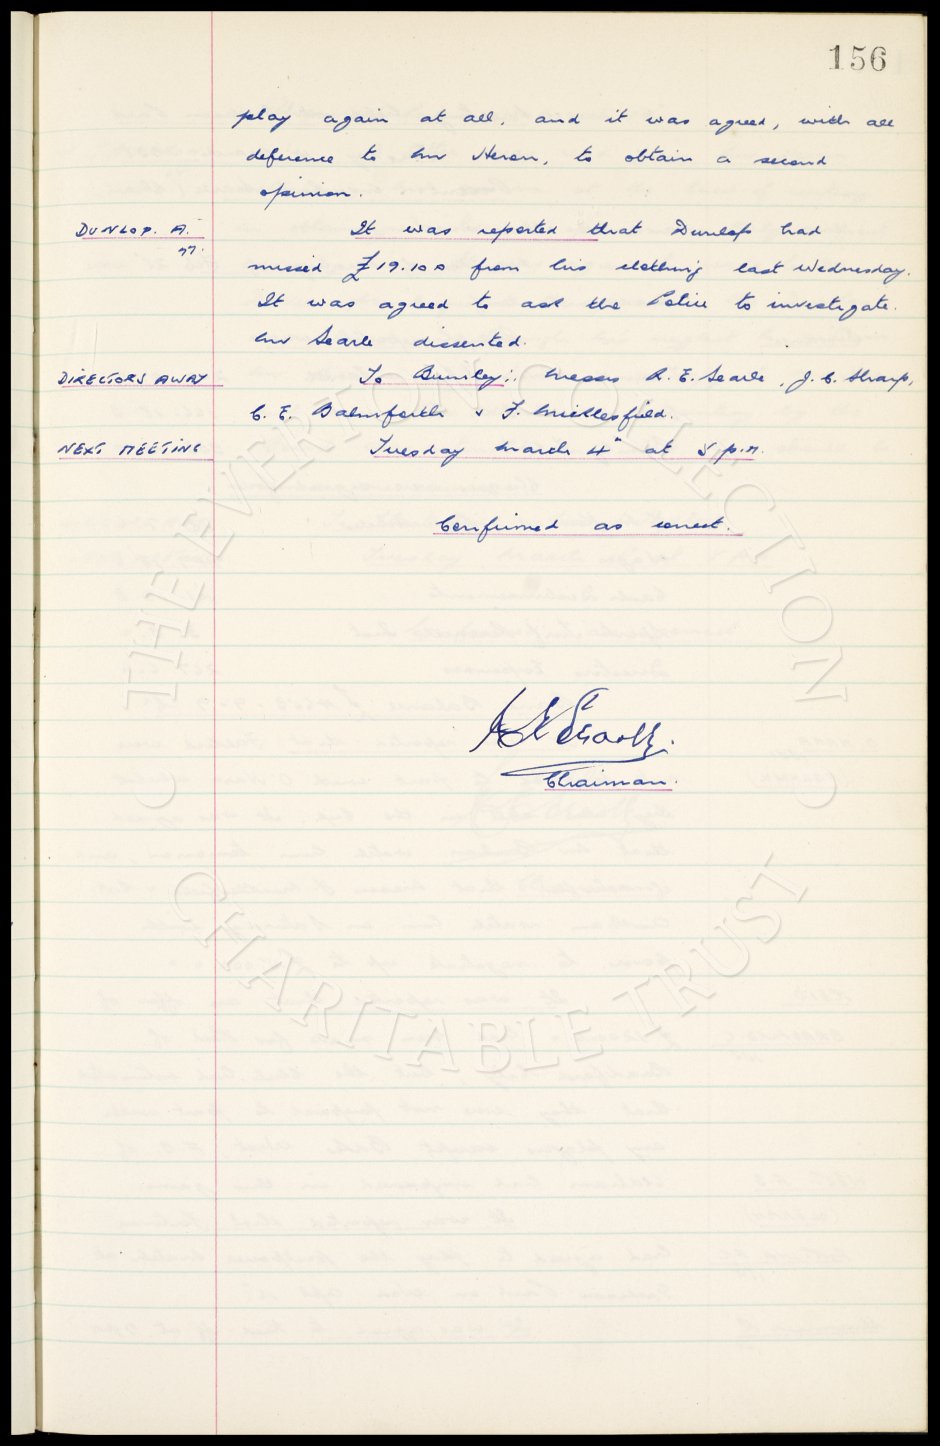 156
play again at all, and it was agreed, with all
deference to Mr Heron, to obtain a second
opinion.
DUNLOP. A. It was reported that Dunlop had
missed £19.10.0 from his clothing last Wednesday.
It was agreed to ask the Police to investigate.
Mr Searle dissented.
DIRECTORS AWAY To Burnley:. Messrs R. E. Searle, J. C. Sharp,
C. E. Balmforth & F. Micklesfield.
NEXT MEETING Tuesday March 4th at 5 p.m.
Confirmed as correct.
Chairman.
THE EVERTON COLLECTION
CHARITABLE TRUST